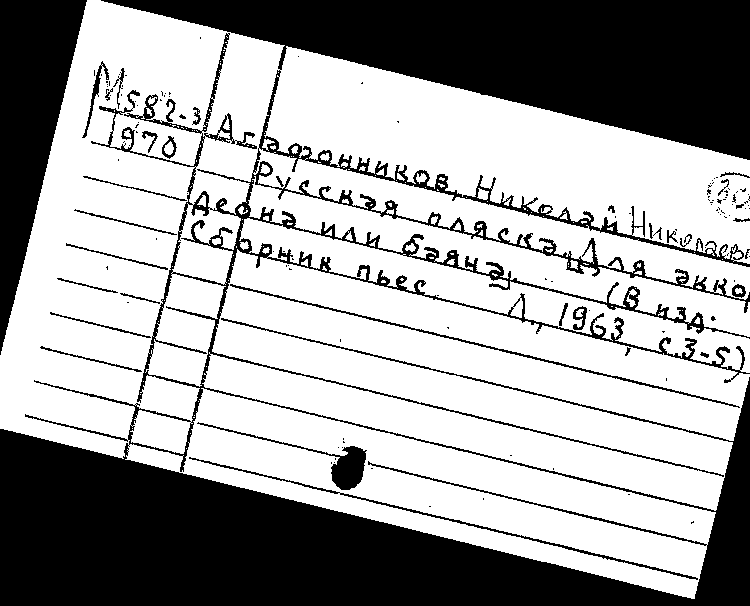 М582-3
1970
30
Агафонников, Николай Николаеви
Русская пляска. [Для аккор
деона или баяна]. (В изд:
Сборник пьес. Л., 1963, с.3-5.)